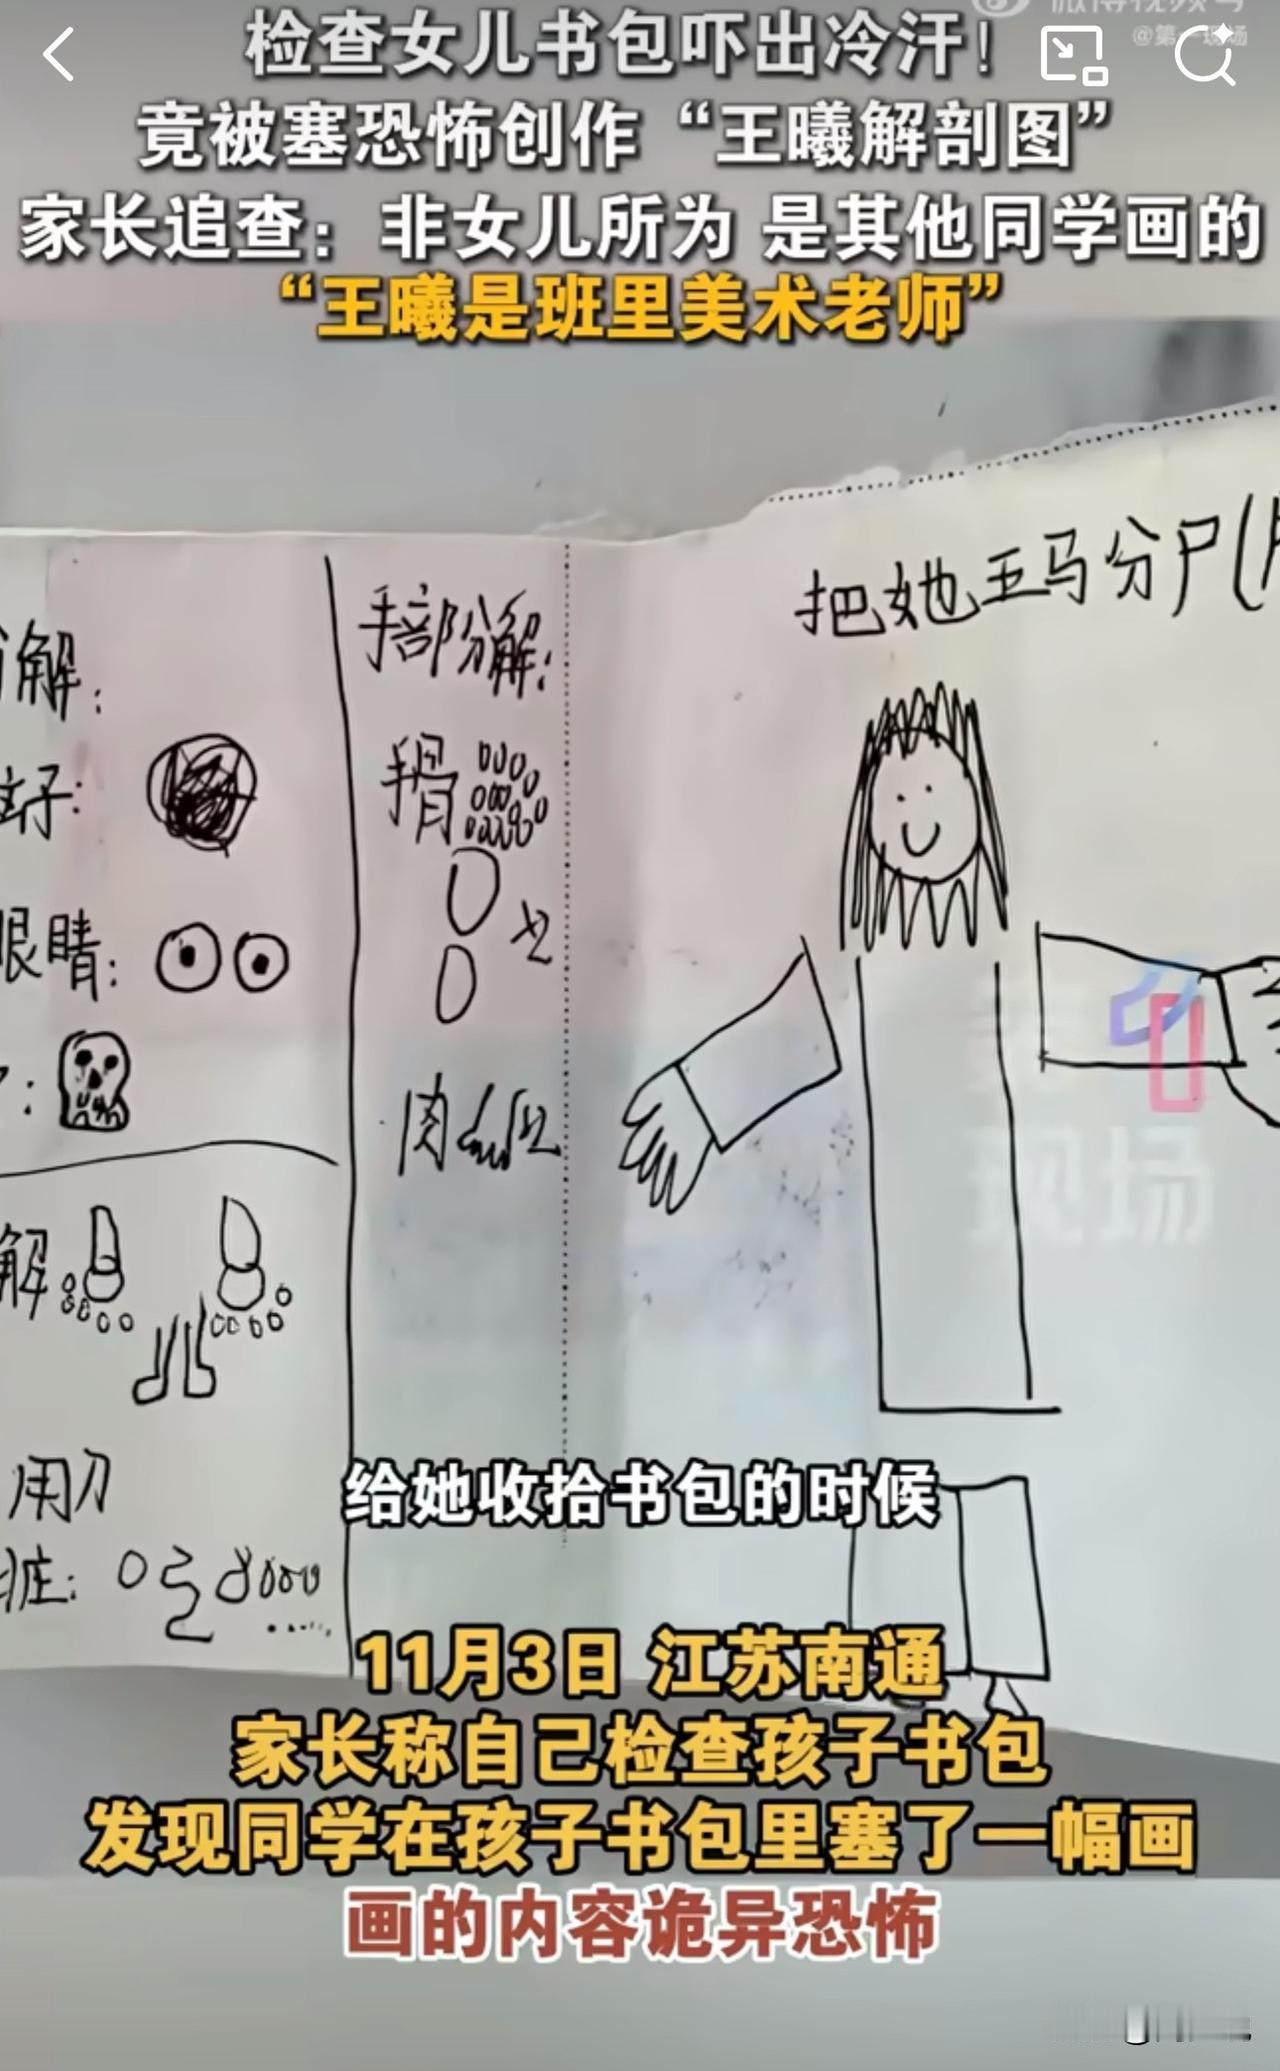 @第一现场
检查女儿书包吓出冷汗！
竟被塞恐怖创作“王曦解剖图”
家长追查：非女儿所为 是其他同学画的
“王曦是班里美术老师”
把她五马分尸(
解：
手部分解：
手骨
眼睛：
肉
解
用刀
脏：
现场
给她收拾书包的时候
11月3日 江苏南通
家长称自己检查孩子书包
发现同学在孩子书包里塞了一幅画
画的内容诡异恐怖